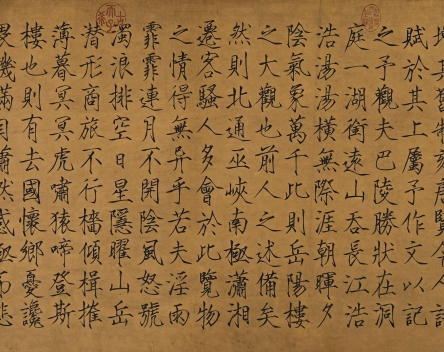 增其舊制刻唐賢今人詩
賦於其上屬予作文以記
之予觀夫巴陵勝狀在洞
庭一湖銜遠山吞長江浩
浩湯湯橫無際涯朝暉夕
陰氣象萬千此則岳陽樓
之大觀也前人之述備矣
然則北通巫峽南極瀟湘
遷客騷人多會於此覽物
之情得無異乎若夫淫雨
霏霏連月不開陰風怒號
濁浪排空日星隱曜山岳
潛形商旅不行檣傾楫摧
薄暮冥冥虎嘯猿啼登斯
樓也則有去國懷鄉憂讒
畏譏滿目蕭然感極而悲